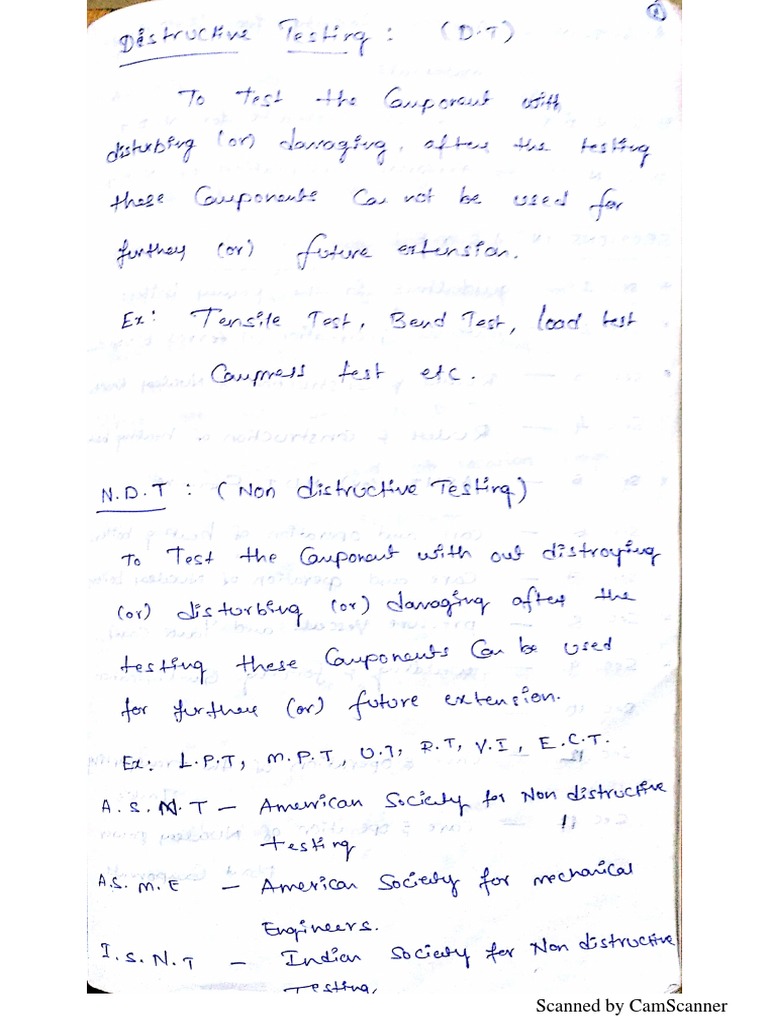 Distructive Testing : (D.T)
To Test the Component with
disturbing (or) damaging, after the testing
these Components Can not be used for
further (or) future extension.
Ex: Tensile Test, Bend Test, load test
Compress test etc.
N.D.T : (Non distructive Testing)
To Test the Component with out distroying
(or) disturbing (or) damaging after the
testing these Components Can be used
for further (or) future extension.
Ex: L.P.T, M.P.T, U.T, R.T, V.I, E.C.T.
A.S.N.T — American Society for Non distructive
testing
A.S.M.E — American Society for mechanical
Engineers.
I.S.N.T — Indian Society for Non distructive
Testing.
Scanned by CamScanner